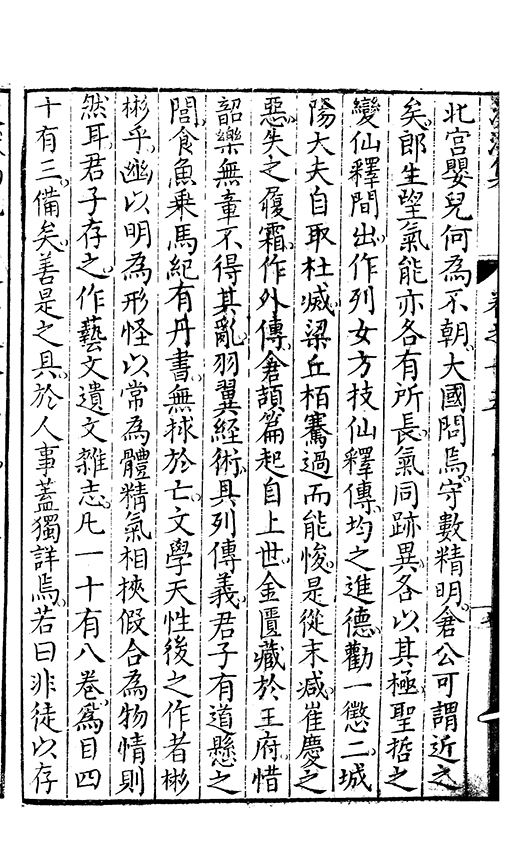 北宫嬰兒何為不朝大國問焉守數精明倉公可謂近之
矣郎生望氣能亦各有所長氣同跡異各以其極聖哲之
變仙釋間出作列女方技仙釋傳均之進德勸一懲二城
陽大夫自取杜滅梁丘栢騫過而能悛是從末减崔慶之
惡失之履霜作外傳倉頡篇起自上世金匱藏於王府惜
韶樂無臺不得其亂羽翼經術具列傳義君子有道懸之
閭食魚乘馬紀有丹書無捄於亡文學天性後之作者彬
彬乎幽以明為形怪以常為體精氣相挾假合為物情則
然耳君子存之作藝文遺文雜志凡一十有八卷為目四
十有三備矣善是之具於人事蓋獨詳焉若曰非徒以存